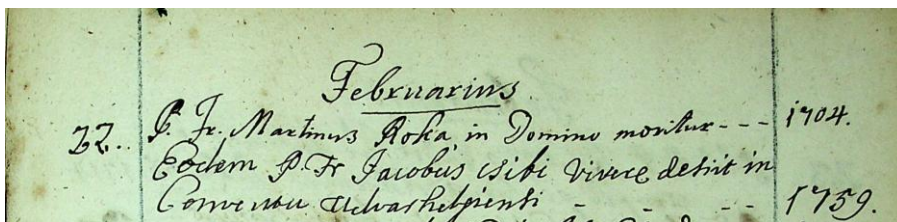 Februarius
22.. P. Fr. Martinus Roka in Domino moritur - - - 1704.
Eodem P. Fr Jacobus csibi vivere desiit in
Conventu Udvarhelyiensi - - - - 1759.